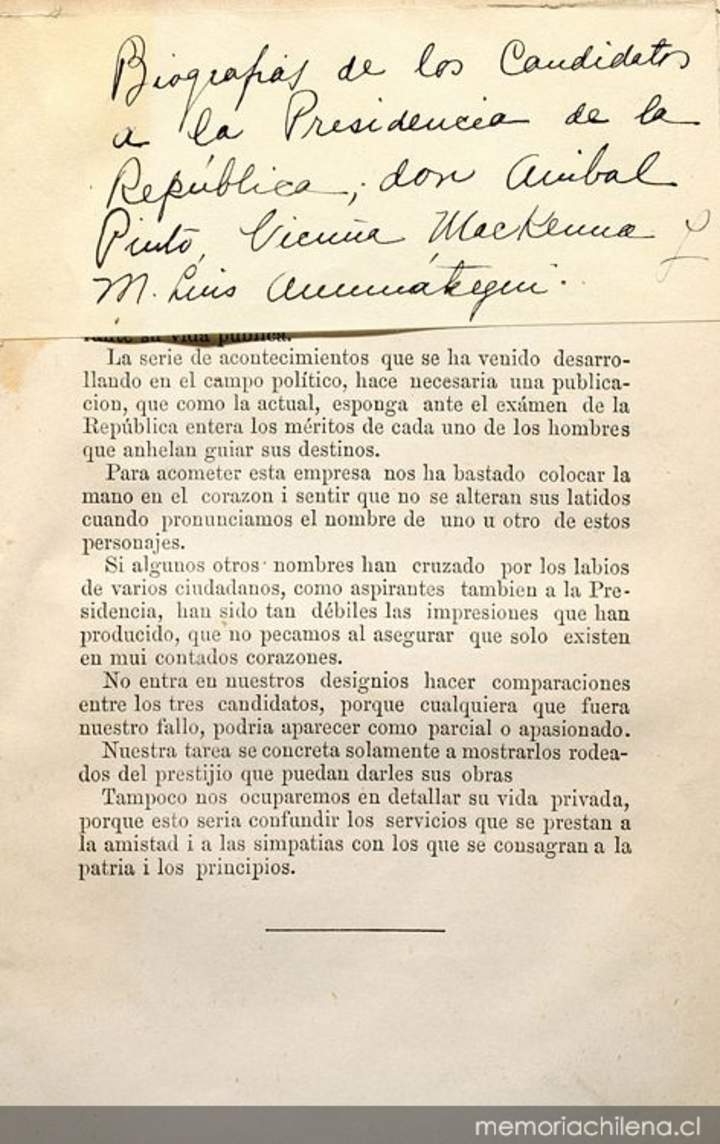 Biografias de los Candidatos
a la Presidencia de la
República, don Anibal
Pinto, Vicuña MacKenna y
M. Luis Amunátegui.
rante su vida pública.
La serie de acontecimientos que se ha venido desarro-
llando en el campo político, hace necesaria una publica-
cion, que como la actual, esponga ante el exámen de la
República entera los méritos de cada uno de los hombres
que anhelan guiar sus destinos.
Para acometer esta empresa nos ha bastado colocar la
mano en el corazon i sentir que no se alteran sus latidos
cuando pronunciamos el nombre de uno u otro de estos
personajes.
Si algunos otros nombres han cruzado por los labios
de varios ciudadanos, como aspirantes tambien a la Pre-
sidencia, han sido tan débiles las impresiones que han
producido, que no pecamos al asegurar que solo existen
en mui contados corazones.
No entra en nuestros designios hacer comparaciones
entre los tres candidatos, porque cualquiera que fuera
nuestro fallo, podria aparecer como parcial o apasionado.
Nuestra tarea se concreta solamente a mostrarlos rodea-
dos del prestijio que puedan darles sus obras
Tampoco nos ocuparemos en detallar su vida privada,
porque esto seria confundir los servicios que se prestan a
la amistad i a las simpatias con los que se consagran a la
patria i los principios.
memoriachilena.cl